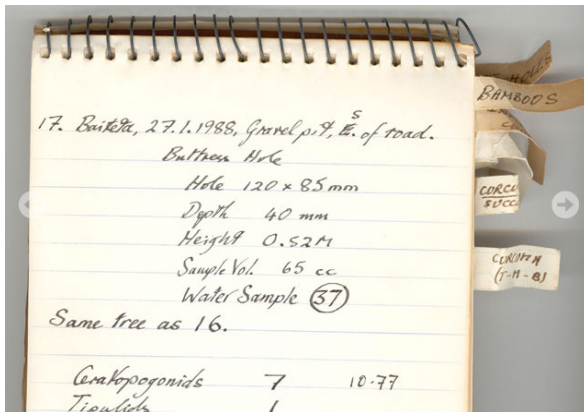 17. Baiteta, 27.1.1988, Gravel pit, S. of road.
Buttress Hole
Hole 120 x 85 mm
Depth 40 mm
Height 0.52M
Sample Vol. 65 cc
Water Sample 37
Same tree as 16.
Ceratopogonids 7 10.77
Tipulids 1
BAMBOOS
CURCU
SUCC
CURCUMA
(T-H-B)